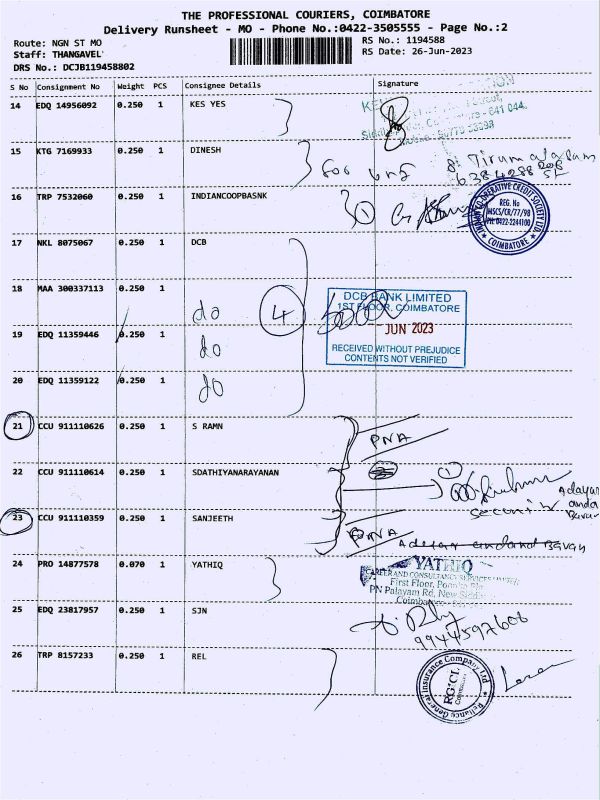 THE PROFESSIONAL COURIERS, COIMBATORE
Delivery Runsheet - MO - Phone No.:0422-3505555 - Page No.:2
Route: NGN ST MO
Staff: THANGAVEL
DRS No.: DCJB119458802
RS No.: 1194588
RS Date: 26-Jun-2023
S No Consignment No Weight PCS Consignee Details Signature
14 EDQ 14956092 0.250 1 KES YES
15 KTG 7169933 0.250 1 DINESH
for
16 TRP 7532060 0.250 1 INDIANCOOPBASNK
1
INDIAN CO-OPERATIVE CREDIT SOCIETY LTD
REG. No
MSCS/CR/77/98
PH: 0422-2244100
COIMBATORE
17 NKL 8075067 0.250 1 DCB
18 MAA 300337113 0.250 1
do 4
DCB BANK LIMITED
1ST FLOOR, COIMBATORE
-- JUN 2023
RECEIVED WITHOUT PREJUDICE
CONTENTS NOT VERIFIED
19 EDQ 11359446 0.250 1
do
20 EDQ 11359122 0.250 1
do
21 CCU 911110626 0.250 1 S RAMN
PNA
22 CCU 911110614 0.250 1 SDATHIYANARAYANAN
1
23 CCU 911110359 0.250 1 SANJEETH
PNA
24 PRO 14877578 0.070 1 YATHIQ
YATHIQ
CAREER AND CONSULTANCY SERVICES
First Floor,
PN Palayam Rd, New
25 EDQ 23817957 0.250 1 SJN
9944597606
26 TRP 8157233 0.250 1 REL
Reliance General Insurance Company Ltd
RGICL